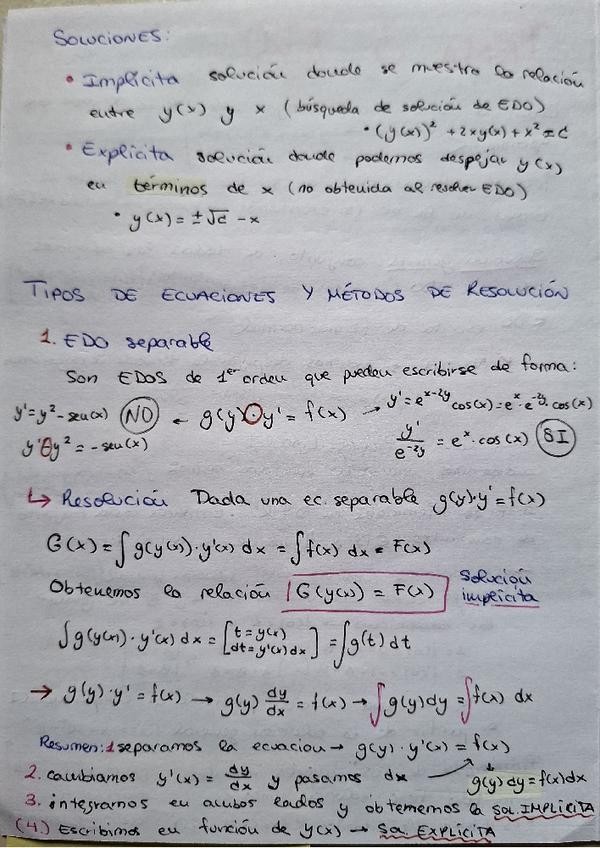 SOLUCIONES:
• Implícita solución donde se muestra la relación
entre y(x) y x (búsqueda de solución de EDO)
• (y(x))² + 2xy(x) + x² = C
• Explícita solución donde podemos despejar y(x)
en términos de x (no obtenida al resolver EDO)
• y(x) = ±√C - x
TIPOS DE ECUACIONES Y MÉTODOS DE RESOLUCIÓN
1. EDO separable
Son EDOS de 1er orden que pueden escribirse de forma:
y' = y² - sen(x) NO ← g(y)·y' = f(x) → y' = e^(x-2y) cos(x) = e^x · e^(-2y) · cos(x)
y' - y² = -sen(x) y'/e^(-2y) = e^x · cos(x) SI
↳ Resolución Dada una ec. separable g(y)·y' = f(x)
G(x) = ∫g(y(x))·y'(x) dx = ∫f(x) dx = F(x)
Obtenemos la relación G(y(x)) = F(x) solución implícita
∫g(y(x))·y'(x) dx = [t = y(x) dt = y'(x) dx] = ∫g(t) dt
→ g(y)·y' = f(x) → g(y) dy/dx = f(x) → ∫g(y) dy = ∫f(x) dx
Resumen: 1 separamos la ecuacion → g(y)·y'(x) = f(x)
2. cambiamos y'(x) = dy/dx y pasamos dx → g(y) dy = f(x) dx
3. integramos en ambos lados y obtenemos la sol. IMPLÍCITA
(4.) Escribimos en función de y(x) → Sol. EXPLÍCITA